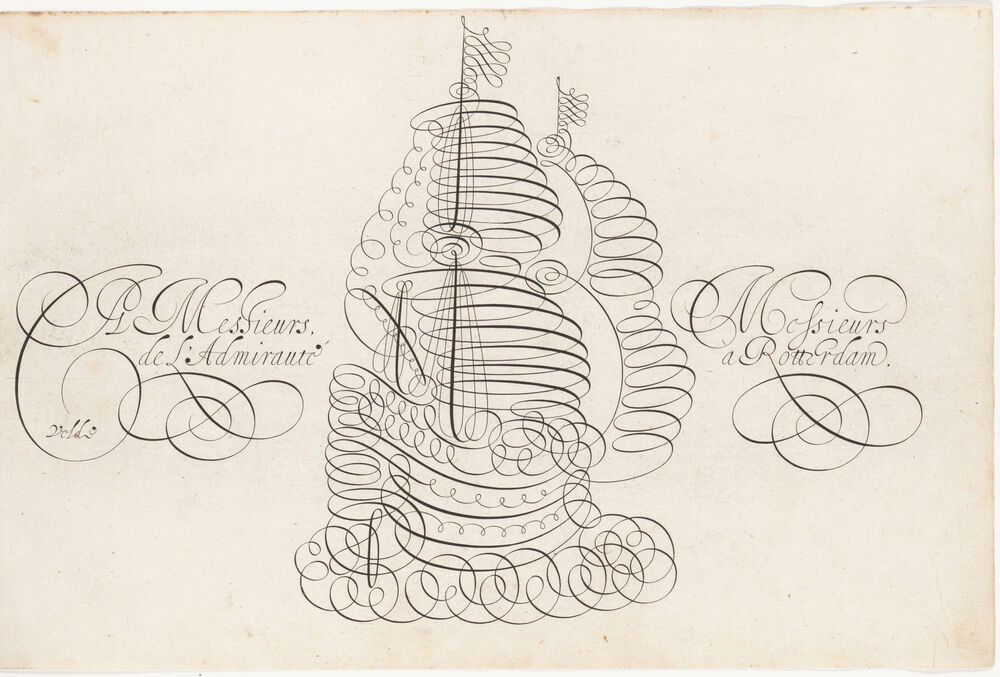 A Messieurs,
de L'Admirauté
Velde
Messieurs
à Rotterdam.
8